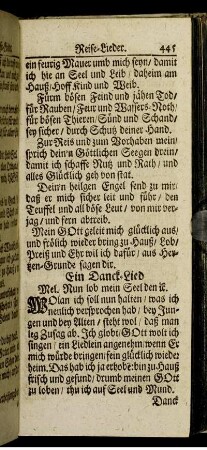 Reise-Lieder. 445
ein feurig Mauer umb mich seyn/ damit
ich hie an Seel und Leib/ daheim am
Hauß/Hoff Kind und Weib.
Fürm bösen Feind und jähen Tod/
für Rauben/ Feur und Wassers-Noth/
für bösen Thieren/ Sünd und Schand/
sey sicher/ durch Schutz deiner Hand.
Zur Reis und zum Vorhaben mein/
sprich dein'n Göttlichen Seegen drein/
damit ich schaffe Nutz und Rath/ und
alles Glücklich geh von stat.
Dein'n heilgen Engel send zu mir/
daß er mich sicher leit und führ/ den
Teuffel und all böse Leut/ von mir ver-
jag/ und fern abtreib.
Mein GOtt geleit mich glücklich aus/
und frölich wieder bring zu Hauß/ Lob/
Preiß und Ehr wil ich dafür/ aus Her-
tzen-Grunde sagen dir.
Ein Danck-Lied
Mel. Nun lob mein Seel den/ ic.
WOlan ich soll nun halten/ was ich
nenlich versprochen hab/ bey Jun-
gen und bey Alten/ steht wol/ daß man
leg Zusag ab. Ich globt GOtt wolt ich
singen/ ein Liedlein angenehm/ wenn Er
mich würde bringen/ fein glücklich wieder
heim. Das hab ich ja erhört: bin zu Hauß
frisch und gesund/ drumb meinen GOtt
zu loben/ thu ich auf Seel und Mund.
Danck